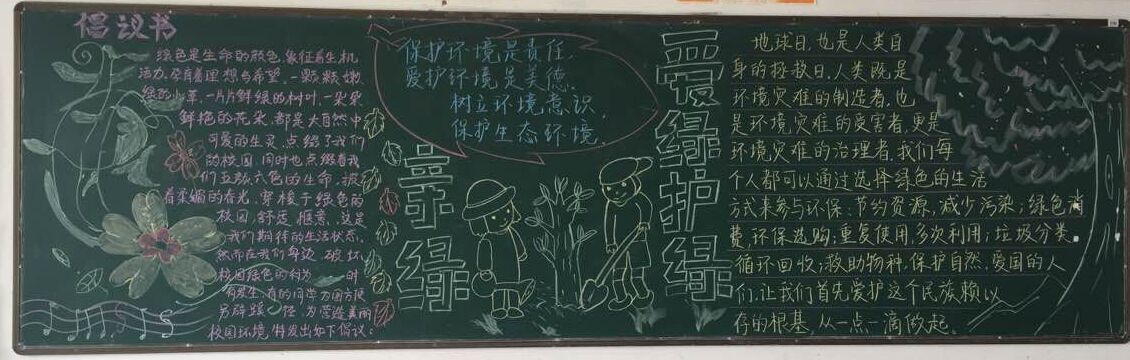 倡议书
绿色是生命的颜色,象征着生机
活力,孕育着理想与希望,一颗颗嫩
绿的小草,一片片鲜绿的树叶,一朵朵
鲜艳的花朵,都是大自然中
可爱的生灵,点缀了我们
的校园,同时也点缀着我
们五颜六色的生命,披
着柔媚的春光,穿梭于绿色的
校园,舒适,惬意,这是
我们期待的生活状态,
然而在我们身边,破坏
校园绿色的行为 时
有发生,有的同学为图方便
另辟蹊径,为营造美丽
校园环境,特发出如下倡议:
保护环境是责任,
爱护环境是美德,
树立环境意识,
保护生态环境,
亲绿
爱绿护绿
地球日,也是人类自
身的拯救日,人类既是
环境灾难的制造者,也
是环境灾难的受害者,更是
环境灾难的治理者,我们每
个人都可以通过选择绿色的生活
方式来参与环保:节约资源,减少污染;绿色消
费,环保选购;重复使用,多次利用;垃圾分类,
循环回收;救助物种,保护自然,爱国的人
们,让我们首先爱护这个民族赖以
存的根基,从一点一滴做起。